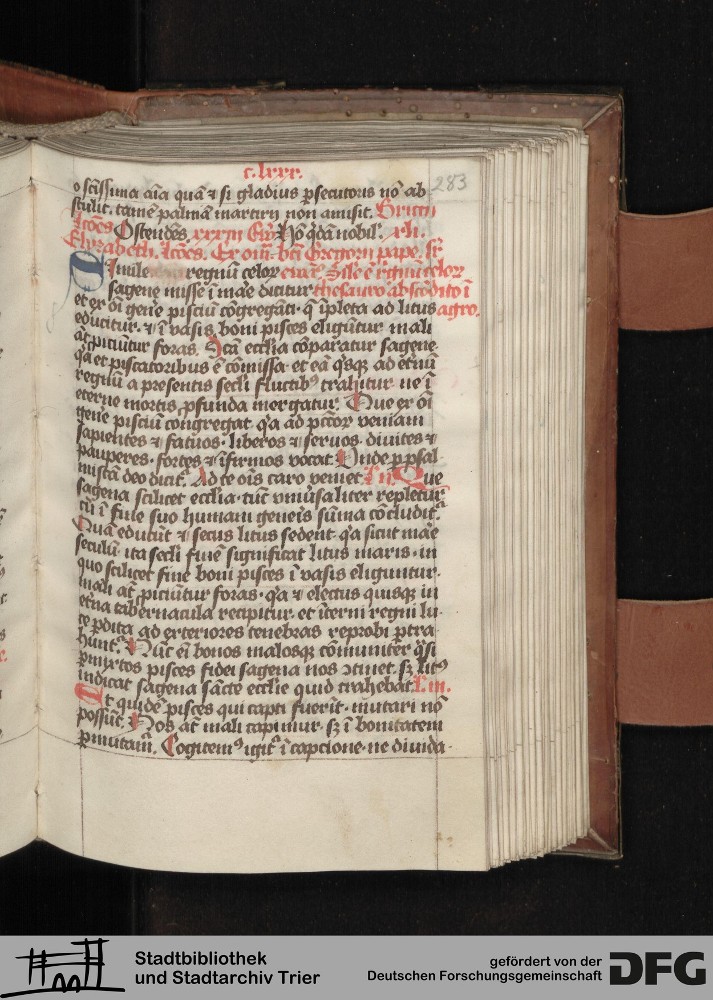 c. lxxx.
283
o scissima aīa quā ⁊ si gladius ꝑsecutoris nō ab
stulit. tamē palmā martirij non amisit. Briccij
Lcōes Ostendes xxxiij Eu Hō qdā nobil'. xli.
Elyzabeth. Lcōes. Ex om̄. bti Gregorij pape. sr̄
Simile regnū celor sagene misse ī māe dicitur thesauro abscōdito ī
et ex oī geñe pisciū cōgregāti. q̄ īpleta ad litus agro.
educitur. ⁊ ī vasis boni pisces eligūtur mali
āt ꝓiciūtur foras. Scā ecclīa cōparatur sagene.
q̄a et piscatoribus ē cōmissa. et eā qsq ad etnū
regnū a presentis secli fluctibꝰ trahitur. ne ī
eterne mortis ꝓfunda mergatur. Que ex oī
geñe pisciū congregat. q̄a ad pctor veniam
sapientes ⁊ fatuos. liberos ⁊ seruos. diuites ⁊
pauperes. fortes ⁊ īfirmos vocat. Unde ꝑ psal
mistā deo dicit. Ad te oīs caro veniet. Que
sagena scilicet ecclīa. tūc vniūsaliter repletur
cū ī fine suo humani generis sūma cōcludit.
Quā educūt ⁊ secus litus sedent. q̄a sicut māe
seculū. ita secli finē significat litus maris. in
quo scilicet fine boni pisces ī vasis eliguntur.
mali āt ꝓiciūtur foras. q̄a ⁊ electus quisque in
etna tabernacula recipitur. et īterni regni lu
ce ꝑdita ad exteriores tenebras reprobi ꝑtra
hunt. Nūc eī bonos malosque cōmuniter q̄si
ꝑmixtos pisces fidei sagena nos ↄtinet. sꝫ litꝰ
indicat sagena sāncte ecclie quid trahebat. L. iij.
Et quidē pisces qui capti fuerīt. mutari nō
possūt. Nos āt mali capimur. sꝫ ī bonitatem
ꝑmutam̄. Cogitemꝰ igit̄ ī captione. ne diuida
Stadtbibliothek
und Stadtarchiv Trier
gefördert von der
Deutschen Forschungsgemeinschaft
DFG